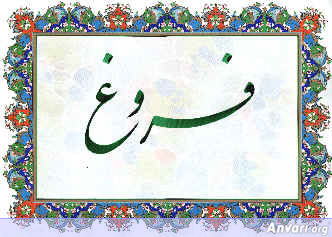 فروغ
Anvari.org